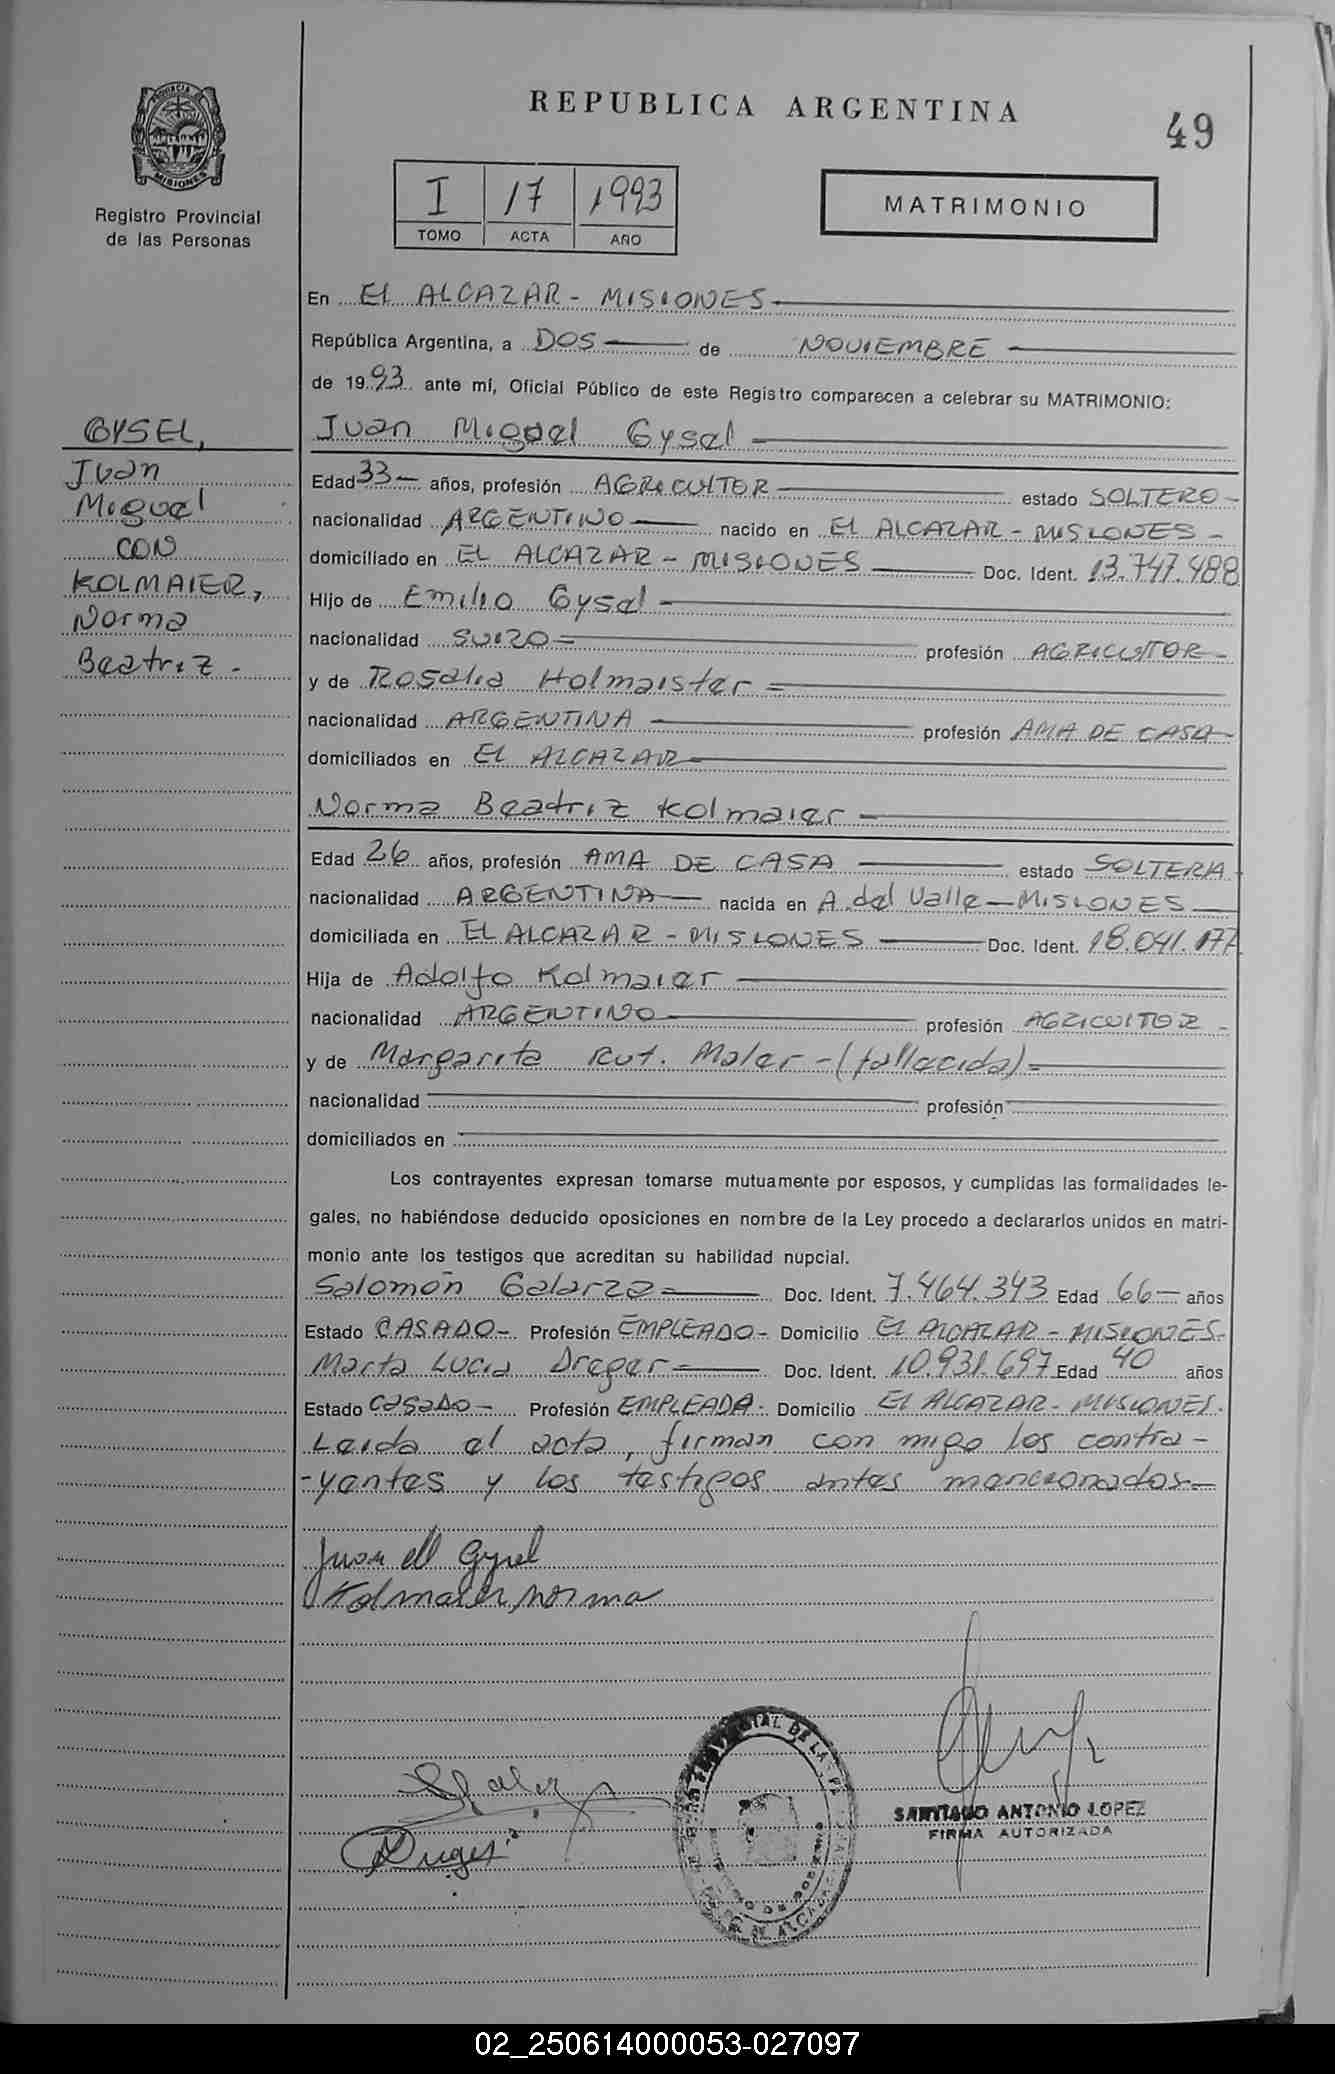 PROVINCIA DE
MISIONES
Registro Provincial
de las Personas
REPUBLICA ARGENTINA
49
I 17 1993
TOMO ACTA AÑO
MATRIMONIO
En EL ALCAZAR - MISIONES
República Argentina, a DOS de NOVIEMBRE
de 1993 ante mí, Oficial Público de este Registro comparecen a celebrar su MATRIMONIO:
GYSEL,
Juan
Miguel
CON
KOLMAIER,
Norma
Beatriz -
Juan Miguel Gysel
Edad 33 años, profesión AGRICULTOR estado SOLTERO -
nacionalidad ARGENTINO nacido en EL ALCAZAR - MISIONES -
domiciliado en EL ALCAZAR - MISIONES Doc. Ident. 13.747.488
Hijo de Emilio Gysel
nacionalidad SUIZO profesión AGRICULTOR -
y de Rosalia Holmaister
nacionalidad ARGENTINA profesión AMA DE CASA
domiciliados en EL ALCAZAR
Norma Beatriz Kolmaier
Edad 26 años, profesión AMA DE CASA estado SOLTERA
nacionalidad ARGENTINA nacida en A. del Valle - MISIONES
domiciliada en EL ALCAZAR - MISIONES Doc. Ident. 18.041.177
Hija de Adolfo Kolmaier
nacionalidad ARGENTINO profesión AGRICULTOR -
y de Margarita Rut. Maler - (fallecida)
nacionalidad profesión
domiciliados en
Los contrayentes expresan tomarse mutuamente por esposos, y cumplidas las formalidades le-
gales, no habiéndose deducido oposiciones en nombre de la Ley procedo a declararlos unidos en matri-
monio ante los testigos que acreditan su habilidad nupcial.
Salomón Galarza Doc. Ident. 7.464.343 Edad 66 años
Estado CASADO - Profesión EMPLEADO - Domicilio EL ALCAZAR - MISIONES.
Marta Lucia Dreger Doc. Ident. 10.931.697 Edad 40 años
Estado CASADO - Profesión EMPLEADA - Domicilio EL ALCAZAR - MISIONES.
Leida el acta, firman con migo los contra-
-yentes y los testigos antes mencionados
Juan M Gysel
Kolmaier norma
SANTIAGO ANTONIO LOPEZ
FIRMA AUTORIZADA
02_250614000053-027097